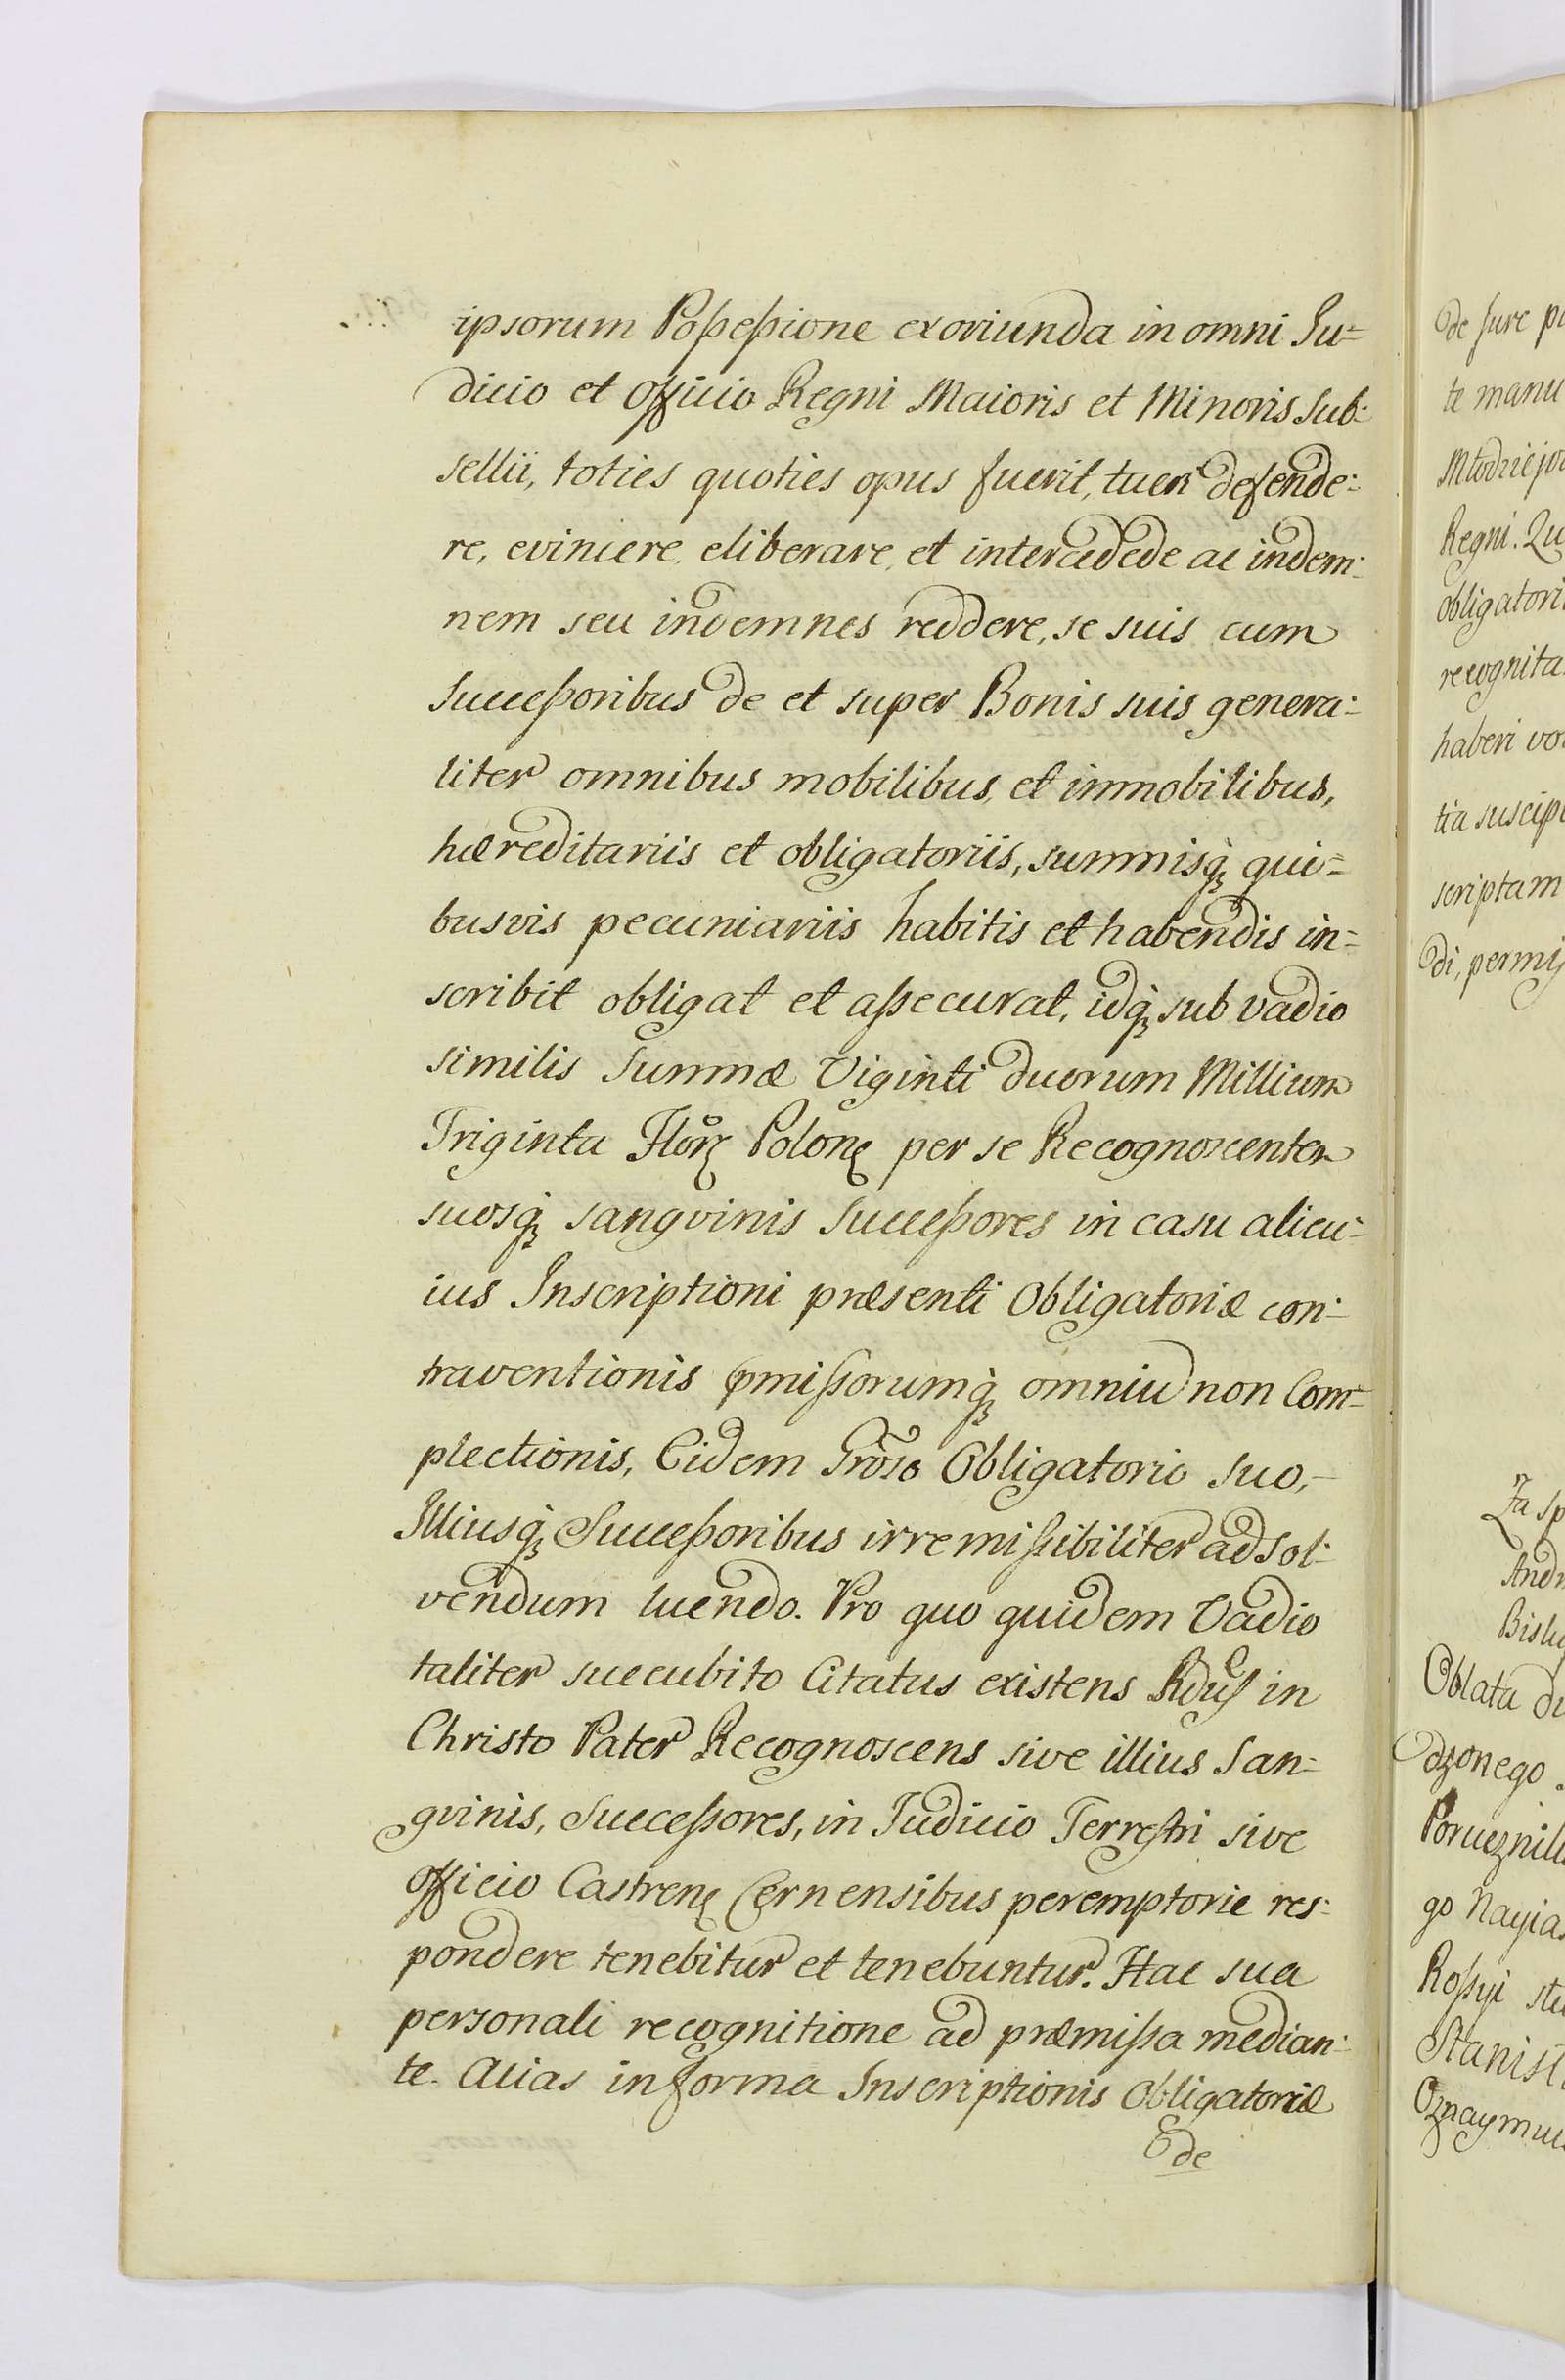 ipsorum Poßeßione exoriunda in omni Iu=
dicio et Officio Regni Maioris et Minoris Sub=
sellii, toties quoties opus fuerit, tueri defende=
re, evincere, eliberare, et intercedede ac indem=
nem seu indemnes reddere, se suis cum
Succeßoribus de et super Bonis suis genera=
liter omnibus mobilibus, et immobilibus,
hæreditariis et obligatoriis, summisq́ꝫ qui=
busvis pecuniariis habitis et habendis in=
scribit obligat et aßecurat, idq́ꝫ sub vadio
similis Summæ Viginti duorum Millium
Triginta Florꝫ Polonꝫ per se Recognoscentem
suosq́ꝫ sangvinis Succeßores in casu alicu=
ius Inscriptioni præsenti Obligatoriæ con=
traventionis pmißorumq́ꝫ omniū non Com=
plectionis, Eidem Grōso Obligatorio suo,
Illiusq́ꝫ Succeßoribus irremißibiliter ad sol=
vendum luendo. Pro quo quidem Vadio
taliter succubito Citatus existens Rdus in
Christo Pater Recognoscens sive illius San=
gvinis, Succeßores, in Iudicio Terrestri sive
Officio Castrenꝫ Cernensibus peremptorie res=
pondere tenebitur et tenebuntur. Hac sua
personali recognitione ad præmißa median=
te. Alias in forma Inscriptionis Obligatoriæ
de
de Iure pa
te manu
Młodziejow
Regni. Qu
obligatori
recognita
haberi vo
tia suscip
scriptam
di, permiß
Za Sp
Andr
Bisku
Oblata du
dzonego
Porucznik
go Nayia
Roßyi
Stanisł
Oznaymu